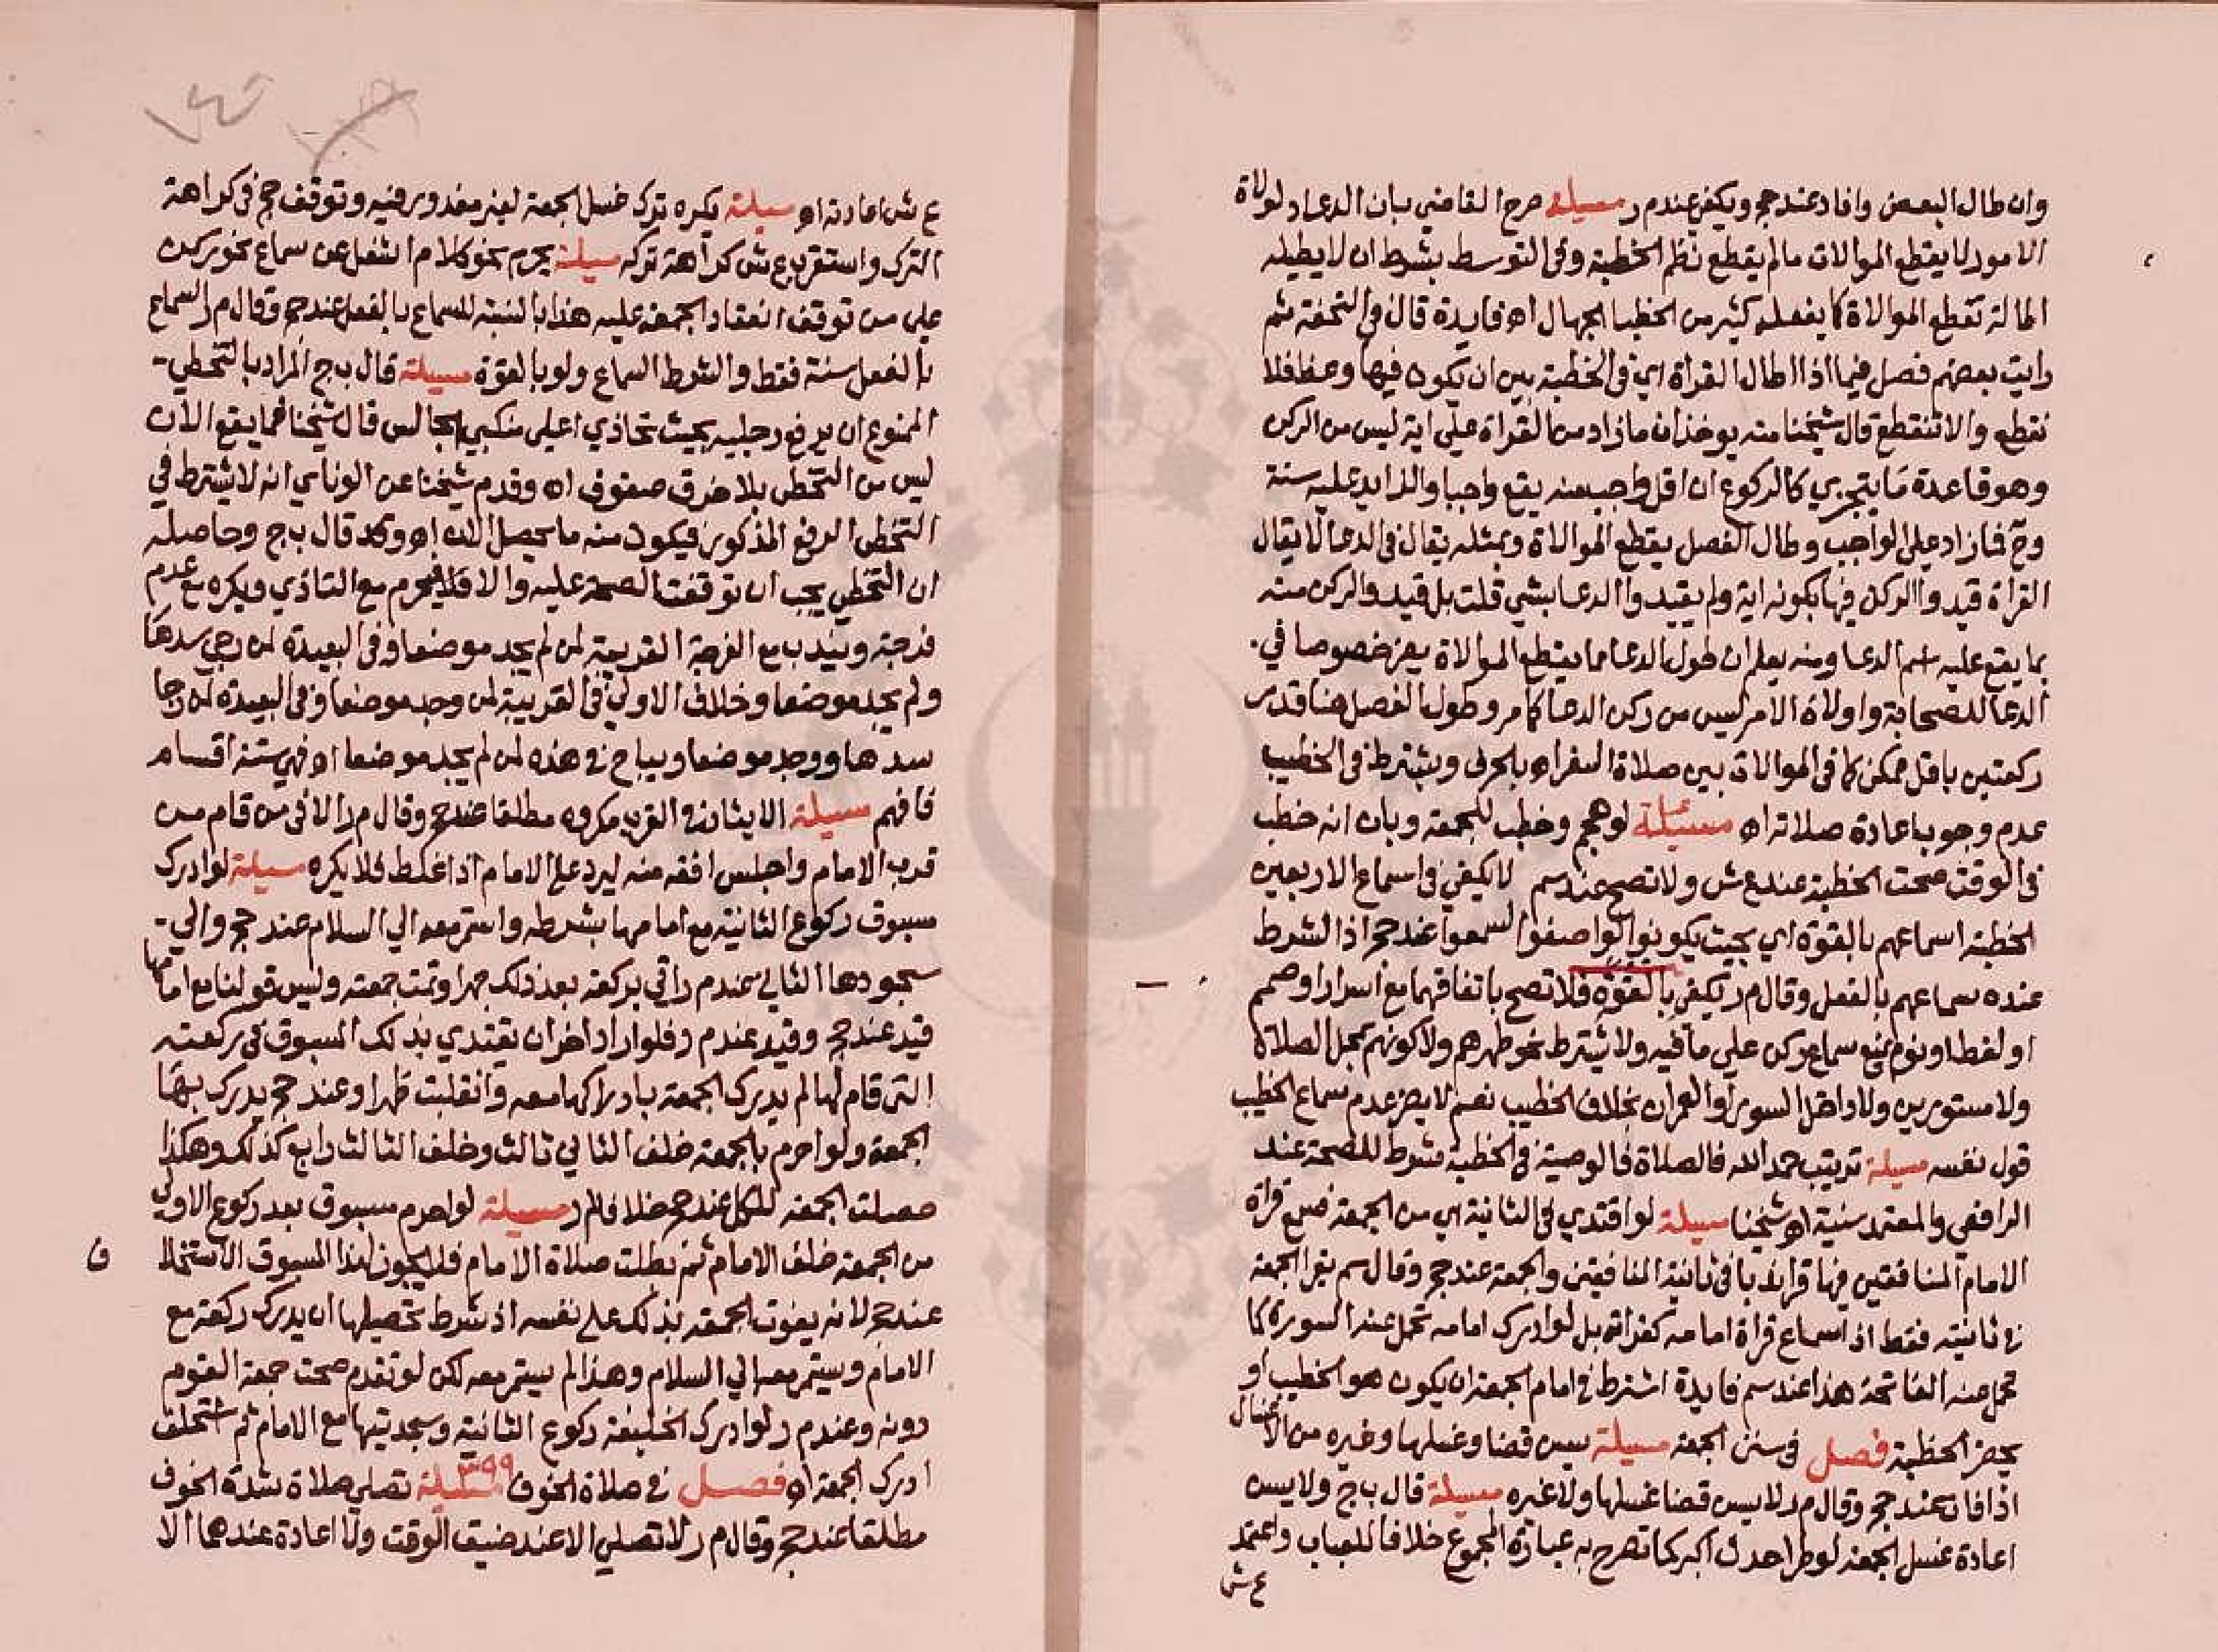 وان طال البعض وافاد عند حج ويكفي عند م ر مسيلة صرح القاضي بان الدعا لولاة
الامور لا يقطع الموالات مالم يقطع نظم الخطبة وفي التوسط بشرط ان لا يطيله
اطالة تقطع الموالاة كما يفعله كثير من الخطبا الجهال اه فايدة قال في التحفة ثم
رايت بعضهم فصل فيما اذا اطال القراة اي في الخطبة بين ان يكون فيها وعظ فلا
تقطع والا تنقطع قال شيخنا منه يوخذ ان ما زاد من القراة على اية ليس من الركن
وهو قاعدة ما يتجزي كالركوع ان اقل واجب منه يقع واجبا والزايد عليه سنة
وح فما زاد على الواجب وطال الفصل يقطع الموالاة وبمثله يقال في الدعا لا يقال
القراة قيدوا الركن فيها بكونه اية ولم يقيدوا الدعا بشي قلت بل قيدوا الركن منه
بما يقع عليه اسم الدعا ومنه يعلم ان طول الدعا مما يقطع الموالاة يضر خصوصا في
الدعا للصحابة واولاة الامر ليس من ركن الدعا كما مر وطول الفصل هنا قدر
ركعتين باقل ممكن كما في الموالات بين صلاة السفر اه بالحرف ويشترط في الخطيب
عدم وجوب اعادة صلاته اه مسيلة لو هجم وخطب للجمعة وبان انه خطب
في الوقت صحت الخطبة عند ع ش ولا تصح عند سم لا يكفي في اسماع الاربعين
الخطبة اسماعهم بالقوة اي بحيث يكونوا لواصغوا لسمعوا عند حج اذ الشرط
عنده سماعهم بالفعل وقال م ر يكفي بالقوة فلا تصح باتفاقهما مع اسرار او صمم
او لغط او نوم يمنع سماع ركن على ما فيه ولا يشترط نحو طهرهم ولا كونهم بمحل الصلاة
ولا مستورين ولا داخل السور او العمران بخلاف الخطيب نعم لا يضر عدم سماع الخطيب
قول نفسه مسيلة ترتيب حمد الله فالصلاة فالوصية في الخطبة شرط للصحة عند
الرافعي والمعتمد سنية اه شيخنا مسيلة لو اقتدي في الثانية اي من الجمعة فسمع قراة
الامام المنافقين فيها قرا ندبا في ثانية المنافقين والجمعة عند حج وقال سم يقرا الجمعة
في ثانيته فقط اذ اسماع قراة امامه كقراته بل لو ادرك امامه تحمل عنه السورة كما
تحمل عنه الفاتحة هذا عند سم فايدة اشترط في امام الجمعة ان يكون هو الخطيب او
يحضر الخطبة فصل في سنن الجمعة مسيلة يسن قضا وغسلها وغيره من الاغسال
اذا فات عند حج وقال م ر لا يسن قضا غسلها ولا غيره مسيلة قال ب ج ولا يسن
اعادة غسل الجمعة لو طرا حدث اكبر كما تصرح به عبارة المجموع خلافا للعباب واعتمد
ع ش
ع ش اعادته اه مسيلة يكره ترك غسل الجمعة لغير معذور فيه وتوقف حج في كراهة
الترك واستقرب ع ش كراهة تركه مسيلة يحرم نحو كلام اشغل عن سماع نحو ركن
على من توقف انعقاد الجمعة عليه هذا بالنسبة للسماع بالفعل عند حج وقال م ر السماع
بالفعل سنة فقط والشرط السماع ولو بالقوة مسيلة قال ب ج المراد بالتخطي
الممنوع ان يرفع رجليه بحيث تحاذي اعلى منكبي الجالس قال شيخنا فما يقع الان
ليس من التخطي بلا خرق صفوف اه وقدم شيخنا عن الوناي انه لا يشترط في
التخطي الرفع المذكور فيكون منه ما يحصل الان اه وقد قال ب ج وحاصله
ان التخطي يجب ان توقفت الصحة عليه والا فلا فيحرم مع التاذي ويكره مع عدم
فرجة ويندب مع الفرجة القريبة لمن لم يجد موضعا وفي البعيدة لمن رجي سدها
ولم يجد موضعا وخلاف الاولى في القريبة لمن وجد موضعا وفي البعيدة لمن رجا
سدها ووجد موضعا ويباح في هذه لمن لم يجد موضعا اه فهي ستة اقسام
فافهم مسيلة الايثار في القرب مكروه مطلقا عند حج وقال م ر الا في من قام من
قرب الامام واجلس افقه منه ليرد على الامام اذا غلط فلا يكره مسيلة لو ادرك
مسبوق ركوع الثانية مع امامها بشرطه واستمر معه الي السلام عند حج والي
سجودها الثاني عند م ر اتي بركعة بعد ذلك جهرا وتمت جمعته وليس قولنا مع امامها
قيد عند حج وقيد عند م ر فلو اراد اخر ان يقتدي بذلك المسبوق في ركعته
التي قام لها لم يدرك الجمعة بادراكها معه وانقلبت ظهرا وعند حج يدرك بها
الجمعة ولو احرم بالجمعة خلف الثاني ثالث وخلف الثالث رابع كذلك وهكذا
حصلت الجمعة للكل عند حج خلافا لم ر مسيلة لو احرم مسبوق بعد ركوع الاولي
من الجمعة خلف الامام ثم بطلت صلاة الامام فلا يجوز لهذا المسبوق الاستخلا
ف
عند حج لانه يفوت الجمعة بذلك على نفسه اذ شرط تحصيلها ان يدرك ركعة مع
الامام ويستمر معه الي السلام وهذا لم يستمر معه لكن لو تقدم صحت جمعة القوم
دونه وعند م ر لو ادرك الخليفة ركوع الثانية وسجدتيها مع الامام ثم استخلف
ادرك الجمعة اه فصل في صلاة الخوف مسيلة تصلى صلاة شدة الخوف
مطلقا عند حج وقال م ر لا تصلي الا عند ضيق الوقت ولا اعادة عندهما الا